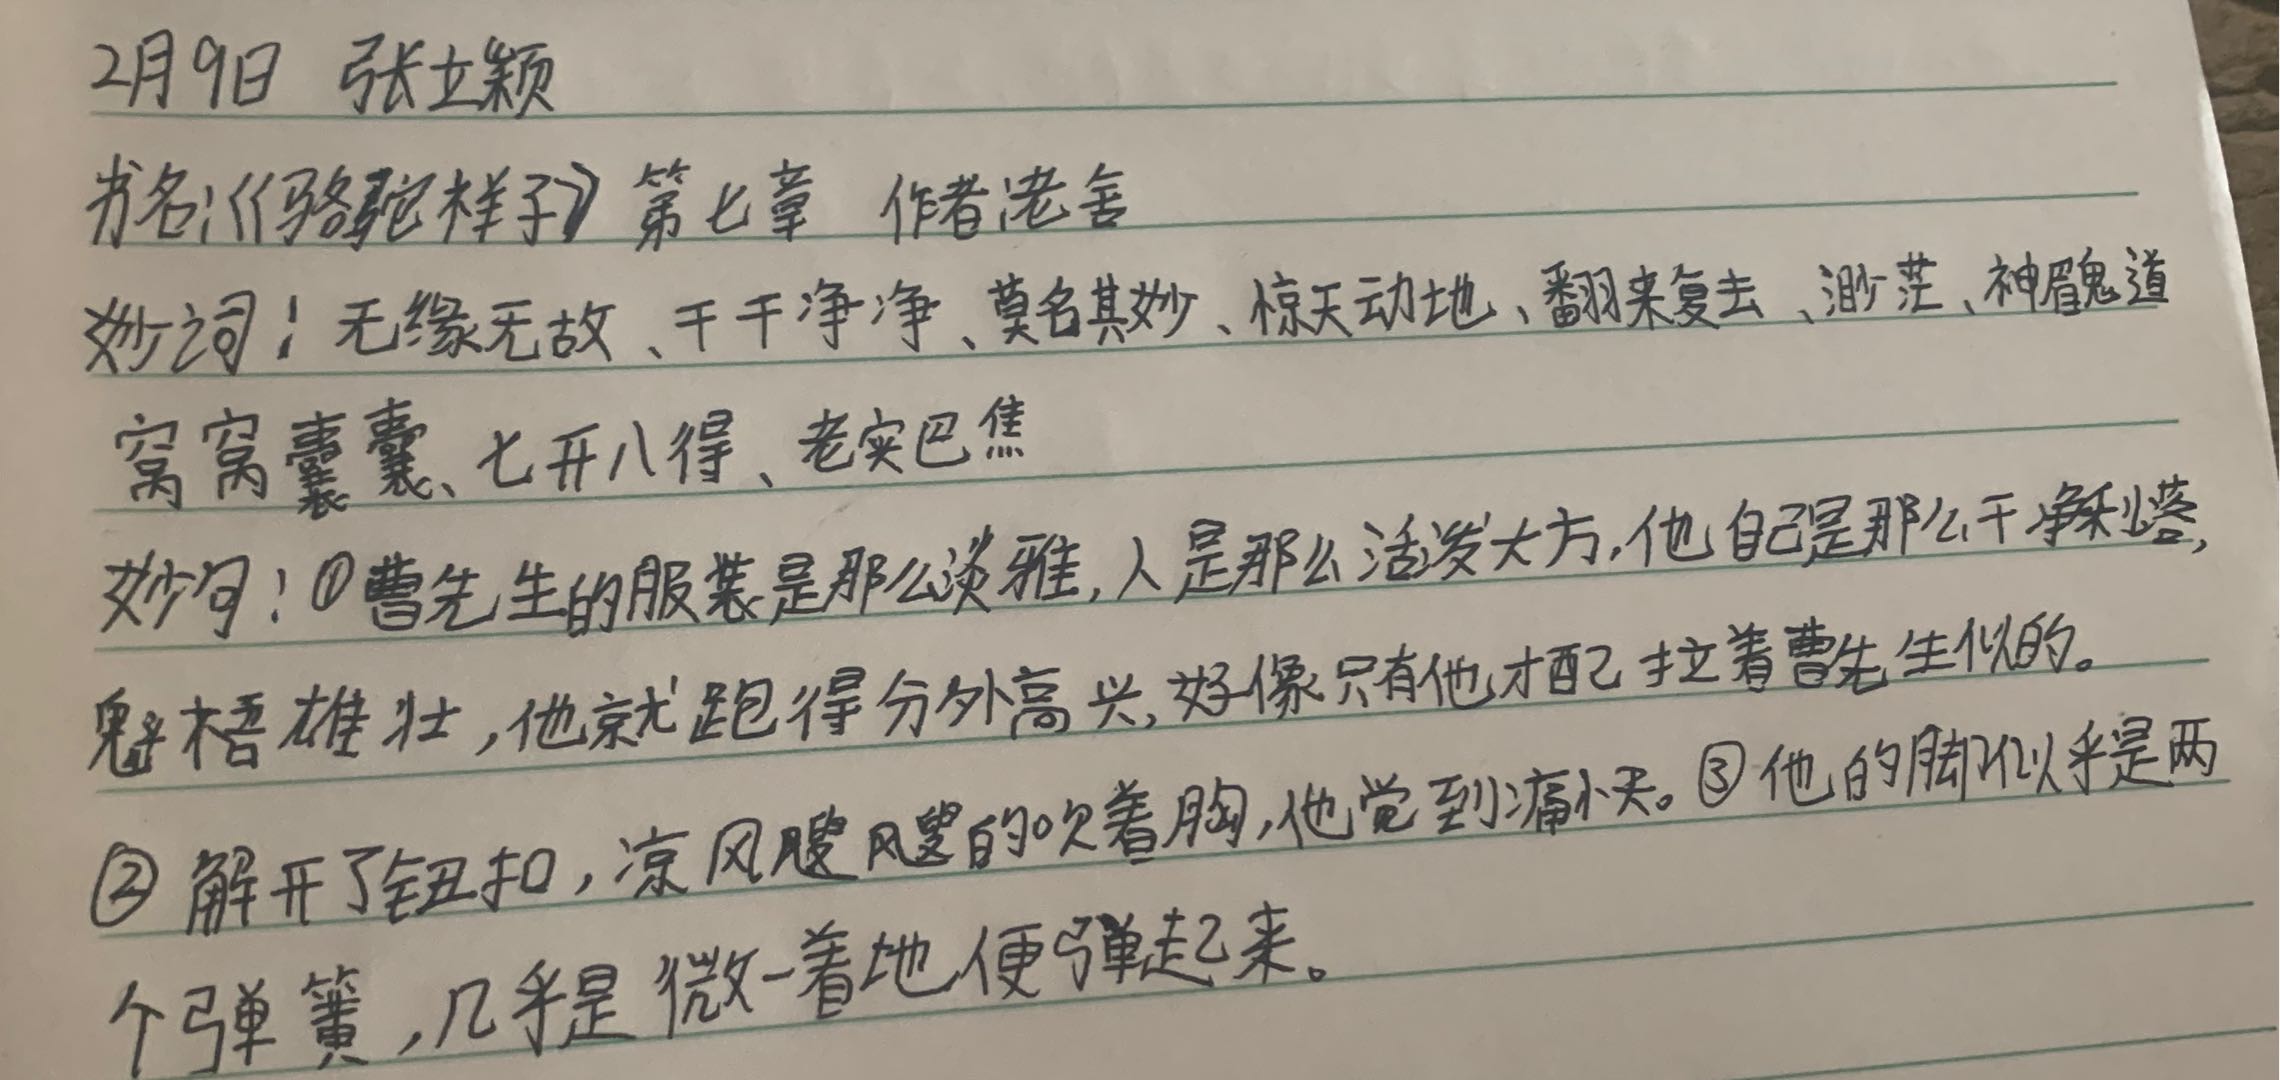 2月9日 张立颖
书名:《骆驼样子》第七章 作者:老舍
妙词:无缘无故、干干净净、莫名其妙、惊天动地、翻来复去、渺茫、神眉鬼道
窝窝囊囊、七开八得、老实巴焦
妙句:①曹先生的服装是那么淡雅,人是那么活泼大方,他自己是那么干净利落,
魁梧雄壮,他就跑得分外高兴,好像只有他才配拉着曹先生似的。
②解开了钮扣,凉风飕飕的吹着胸,他觉到痛快。③他的脚似乎是两
个弹簧,几乎是微一着地便弹起来。